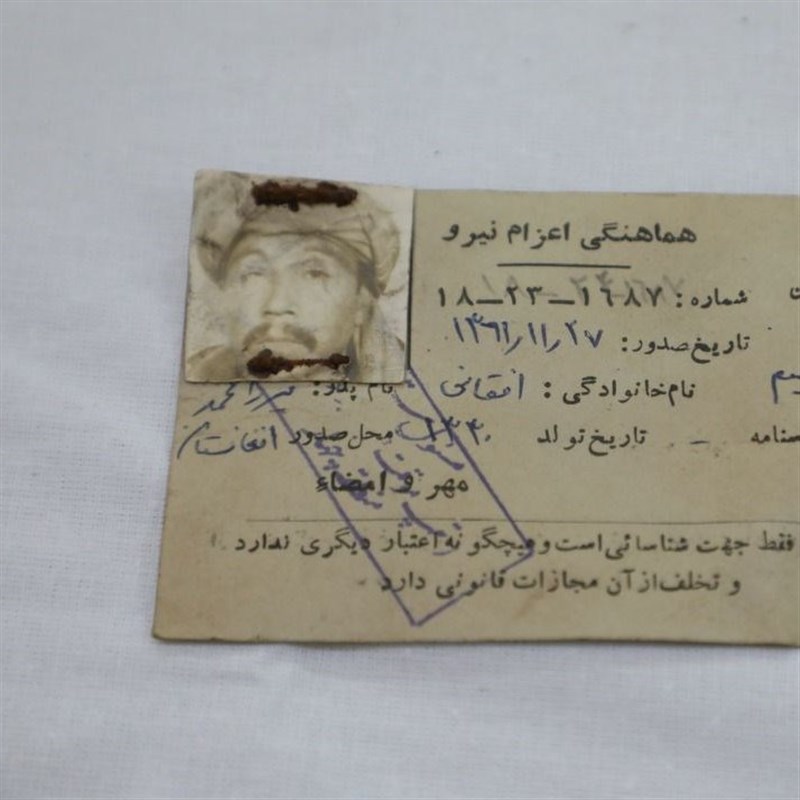 هماهنگی اعزام نیرو
شماره: ۱۶۸۷_۲۳_۱۸
تاریخ صدور: ۱۳۶۱/۱۱/۲۷
نام خانوادگی: افغانی نام پدر:
تاریخ تولد ۱۳۳۰ محل صدور افغانستان
مهر و امضاء
فقط جهت شناسائی است و هیچگونه اعتبار دیگری ندارد
و تخلف از آن مجازات قانونی دارد